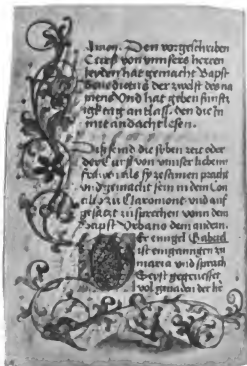 Amen. Den vorgeschriben
Curß von vnnsers herren
leyden hat gemacht Bapst
Benedictus der zwölft des na
mens Vnd hat geben
tag antlass. den die in
mit andacht lesen.
Diß seind die syben zeit oder
der Curß von vnnser lieben
frawen als sy zesamen pracht
vnd gemacht sein in dem Con
cilio zu Claromont vnd auf
gesatzt zu sprechen vonn dem
Bapst Vrbano dem andern.
Er ennigel Gabriel
ist eingangen zu
maria vnd sprach
Geyst gegrüsset
vol genaden der he